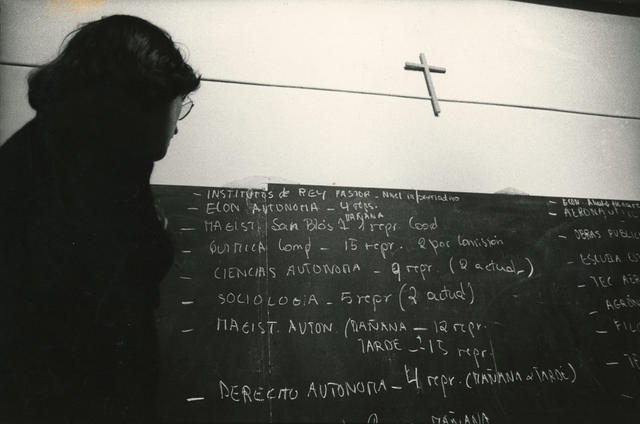 - INSTITUTOS de REY PASTOR - Nivel informativo
- ECON AUTONOMA - 4 reps.
- MAGIST. San Blás 1 1 repr. Coord
MAÑANA
- QUIMICA Comp - 15 repr. 2 por Comisión
- CIENCIAS AUTONOMA - 9 repr. (2 actual)
- SOCIOLOGIA - 5 repr (2 actual)
- MAGIST. AUTON. (MAÑANA - 12 repr.
TARDE - 15 repr.
- DERECHO AUTONOMA - 4 repr. (MAÑANA
TARDE)
MAÑANA
- AERONAUTIC
- OBRAS PUBLIC
- ESCUELA
- TEC AER
- AGRÓ
- FIL